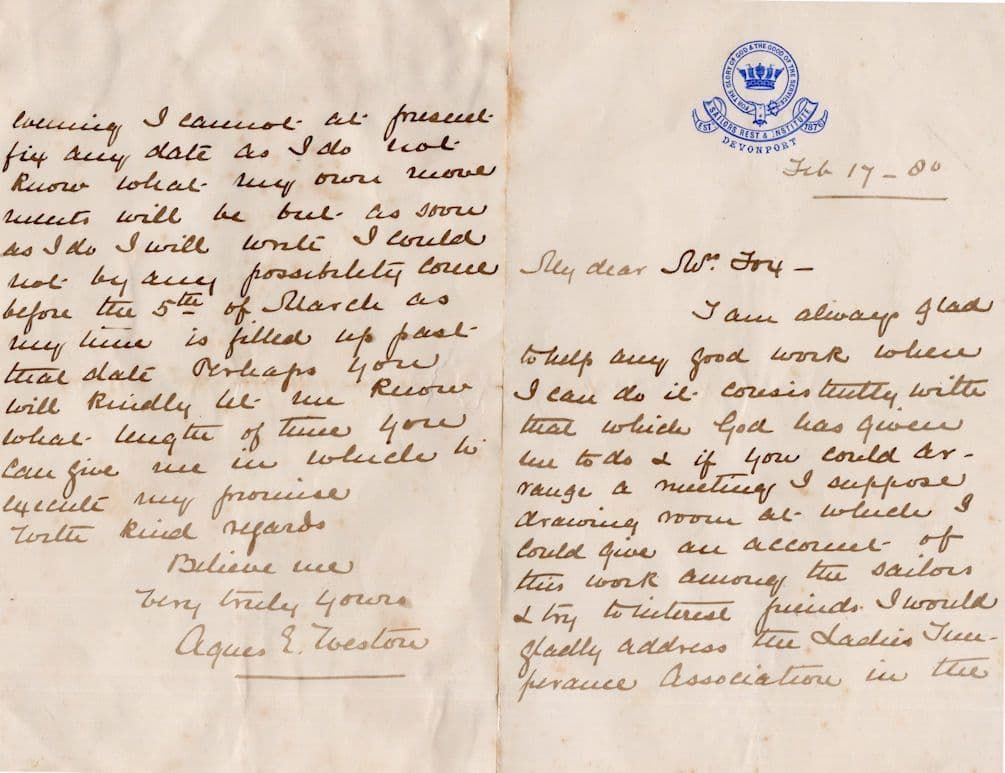 FOR THE GLORY OF GOD & THE GOOD OF THE SERVICE
SAILORS REST & INSTITUTE
EST 1876
DEVONPORT
Feb 17 – 80
My dear Mrs. Fox –
I am always glad
to help any good work where
I can do it consistently with
that which God has given
me to do & if you could ar-
range a meeting I suppose
drawing room at which I
could give an account of
this work among the sailors
& try to interest friends I would
gladly address the Ladies Tem-
perance Association in the
evening I cannot at present
fix any date as I do not
know what my own move
ments will be but as soon
as I do I will write I could
not by any possibility come
before the 5th of March as
my time is filled up past
that date Perhaps you
will kindly let me know
what length of time you
can give me in which to
execute my promise
With kind regards
Believe me
Very truly yours
Agnes E. Weston